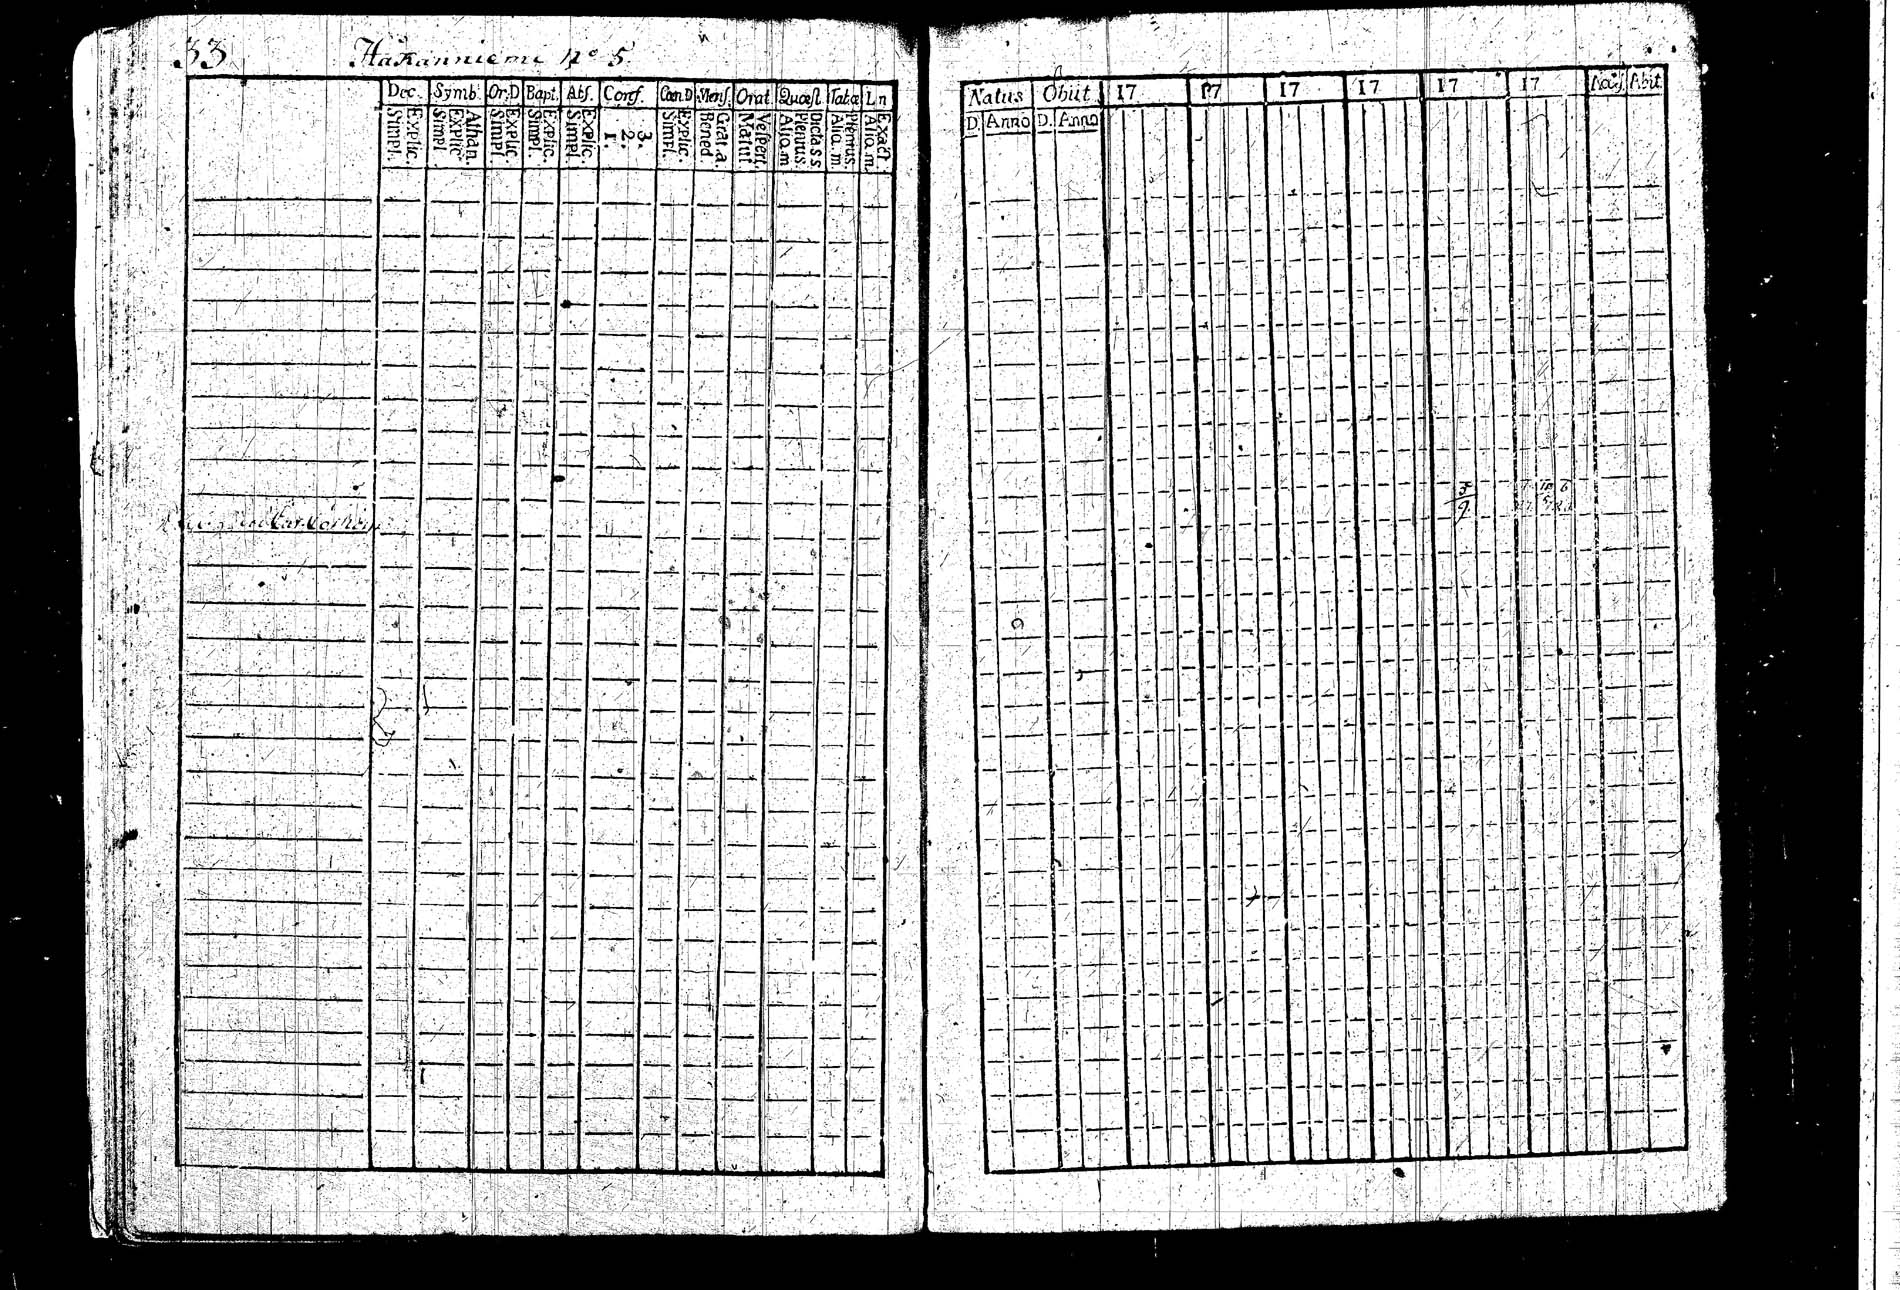 33 Hakanniemi No 5.
Dec. Symb. Or.D Bapt. Abs. Conf. Cœn.D Mens. Orat. Quæst. Tab.æ Ln
Simpl. Explic. Simpl. Explic. Athan. Simpl. Explic. Simpl. Explic. Simpl. Explic. 1. 2. 3. Simpl. Explic. Bened. Grat.a. Matut. Vespert. Alio.m Plenius. Dicta s s Alio.m Plenius. Alio.m. Exact
Natus Obiit 17 17 17 17 17 17 Acceſ. Abit
D. Anno D. Anno
3/9